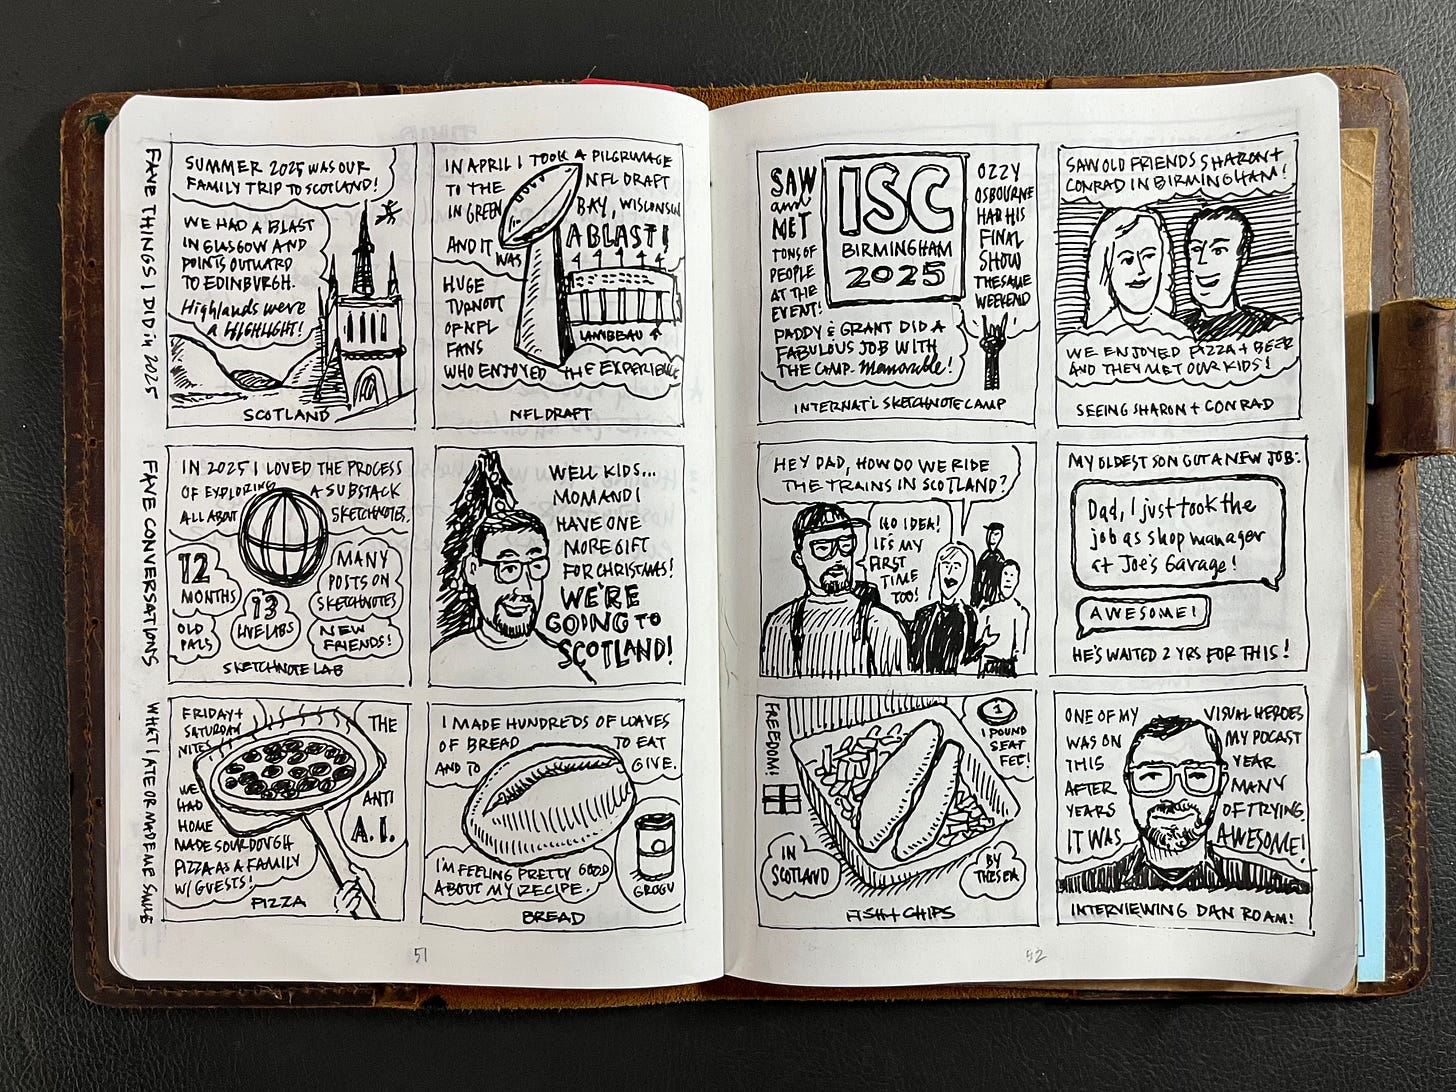 FAVE THINGS I DID in 2025
SUMMER 2025 WAS OUR
FAMILY TRIP TO SCOTLAND!
WE HAD A BLAST
IN GLASGOW AND
POINTS OUTWARD
TO EDINBURGH.
Highlands were
a HIGHLIGHT!
SCOTLAND
IN APRIL I TOOK A PILGRIMAGE
TO THE NFL DRAFT
IN GREEN BAY, WISCONSIN
AND IT WAS A BLAST!
HUGE
TURNOUT
OF NFL
FANS
WHO ENJOYED THE EXPERIENCE
LAMBEAU
NFL DRAFT
SAW
and
MET
TONS OF
PEOPLE
AT THE
EVENT!
ISC
BIRMINGHAM
2025
OZZY
OSBOURNE
HAD HIS
FINAL
SHOW
THE SAME
WEEKEND
PADDY & GRANT DID A
FABULOUS JOB WITH
THE CAMP. Memorable!
INTERNAT'L SKETCHNOTE CAMP
SAW OLD FRIENDS SHARON +
CONRAD IN BIRMINGHAM!
WE ENJOYED PIZZA + BEER
AND THEY MET OUR KIDS!
SEEING SHARON + CONRAD
FAVE CONVERSATIONS
IN 2025 I LOVED THE PROCESS
OF EXPLORING A SUBSTACK
ALL ABOUT SKETCHNOTES.
12
MONTHS
13
LIVE LABS
MANY
POSTS ON
SKETCHNOTES
OLD
PALS
NEW
FRIENDS!
SKETCHNOTE LAB
WELL KIDS...
MOM AND I
HAVE ONE
MORE GIFT
FOR CHRISTMAS!
WE'RE
GOING TO
SCOTLAND!
HEY DAD, HOW DO WE RIDE
THE TRAINS IN SCOTLAND?
NO IDEA!
IT'S MY
FIRST
TIME
TOO!
MY OLDEST SON GOT A NEW JOB:
Dad, I just took the
job as shop manager
at Joe's Garage!
AWESOME!
HE'S WAITED 2 YRS FOR THIS!
WHAT I ATE OR MADE ME SMILE
FRIDAY +
SATURDAY
NITES
WE
HAD
HOME
MADE SOURDOUGH
PIZZA AS A FAMILY
W/ GUESTS!
THE
ANTI
A.I.
PIZZA
I MADE HUNDREDS OF LOAVES
OF BREAD TO EAT
AND TO GIVE.
I'M FEELING PRETTY GOOD
ABOUT MY RECIPE.
GROGU
BREAD
FREEDOM!
1
1 POUND
SEAT
FEE!
IN
SCOTLAND
BY
THE SEA
FISH + CHIPS
ONE OF MY VISUAL HEROES
WAS ON MY PODCAST
THIS YEAR
AFTER MANY
YEARS OF TRYING.
IT WAS AWESOME!
INTERVIEWING DAN ROAM!
51
52